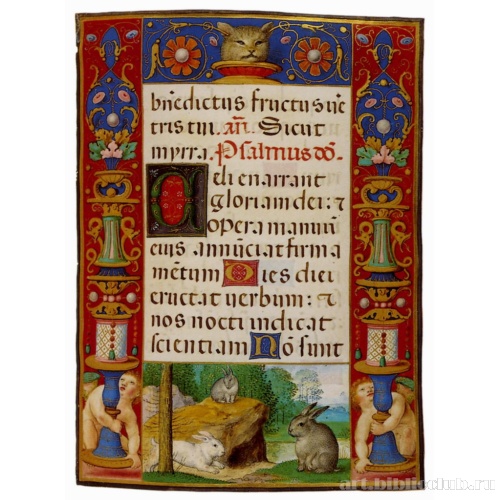 bn̄edictus fructus vē
tris tui. añ. Sicut
myrra. Psalmus đđ.
Celi enarrant
gloriam dei: ⁊
opera manuū
eius annūciat firma
mētum Dies diei
eructat verbum: ⁊
nox nocti indicat
scientiam Nō sunt
art.biblioclub.ru